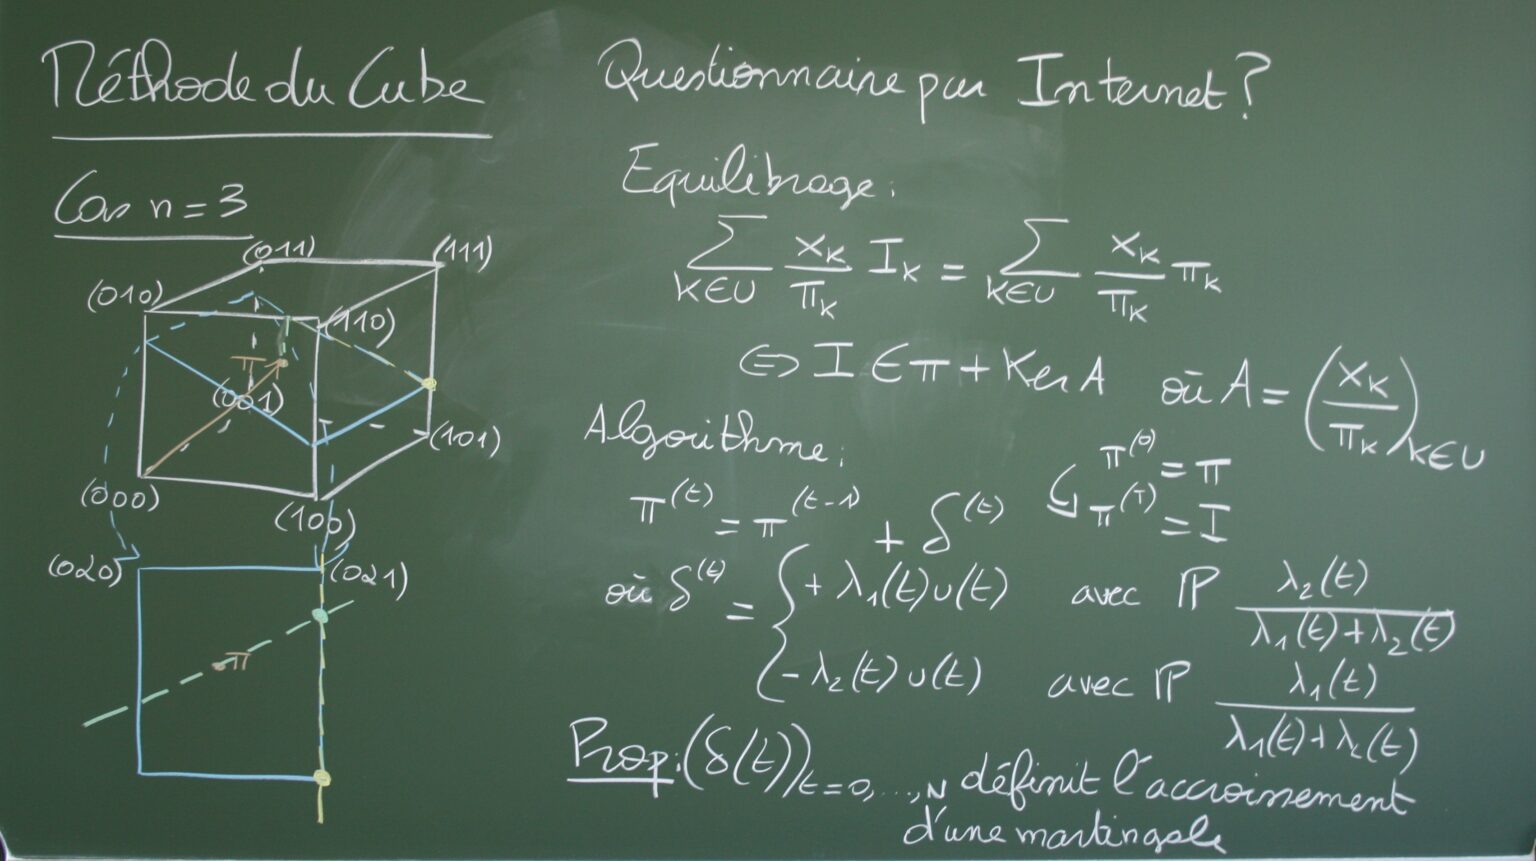 Méthode du Cube
Cas n = 3
(011)
(111)
(010)
(110)
π
(001)
(101)
(000)
(100)
(020)
(021)
π
Questionnaire par Internet ?
Equilibrage :
∑_{k∈U} x_k/π_k I_k = ∑_{k∈U} x_k/π_k π_k
⇔ I ∈ π + Ker A où A = (x_k/π_k)_{k∈U}
Algorithme :
π^(0) = π
π^(T) = I
π^(t) = π^(t-1) + δ^(t)
où δ^(t) = { +λ₁(t)u(t) avec ℙ λ₂(t)/(λ₁(t)+λ₂(t))
-λ₂(t)u(t) avec ℙ λ₁(t)/(λ₁(t)+λ₂(t))
Prop : (δ(t))_{t=0,...,N} définit l'accroissement
d'une martingale